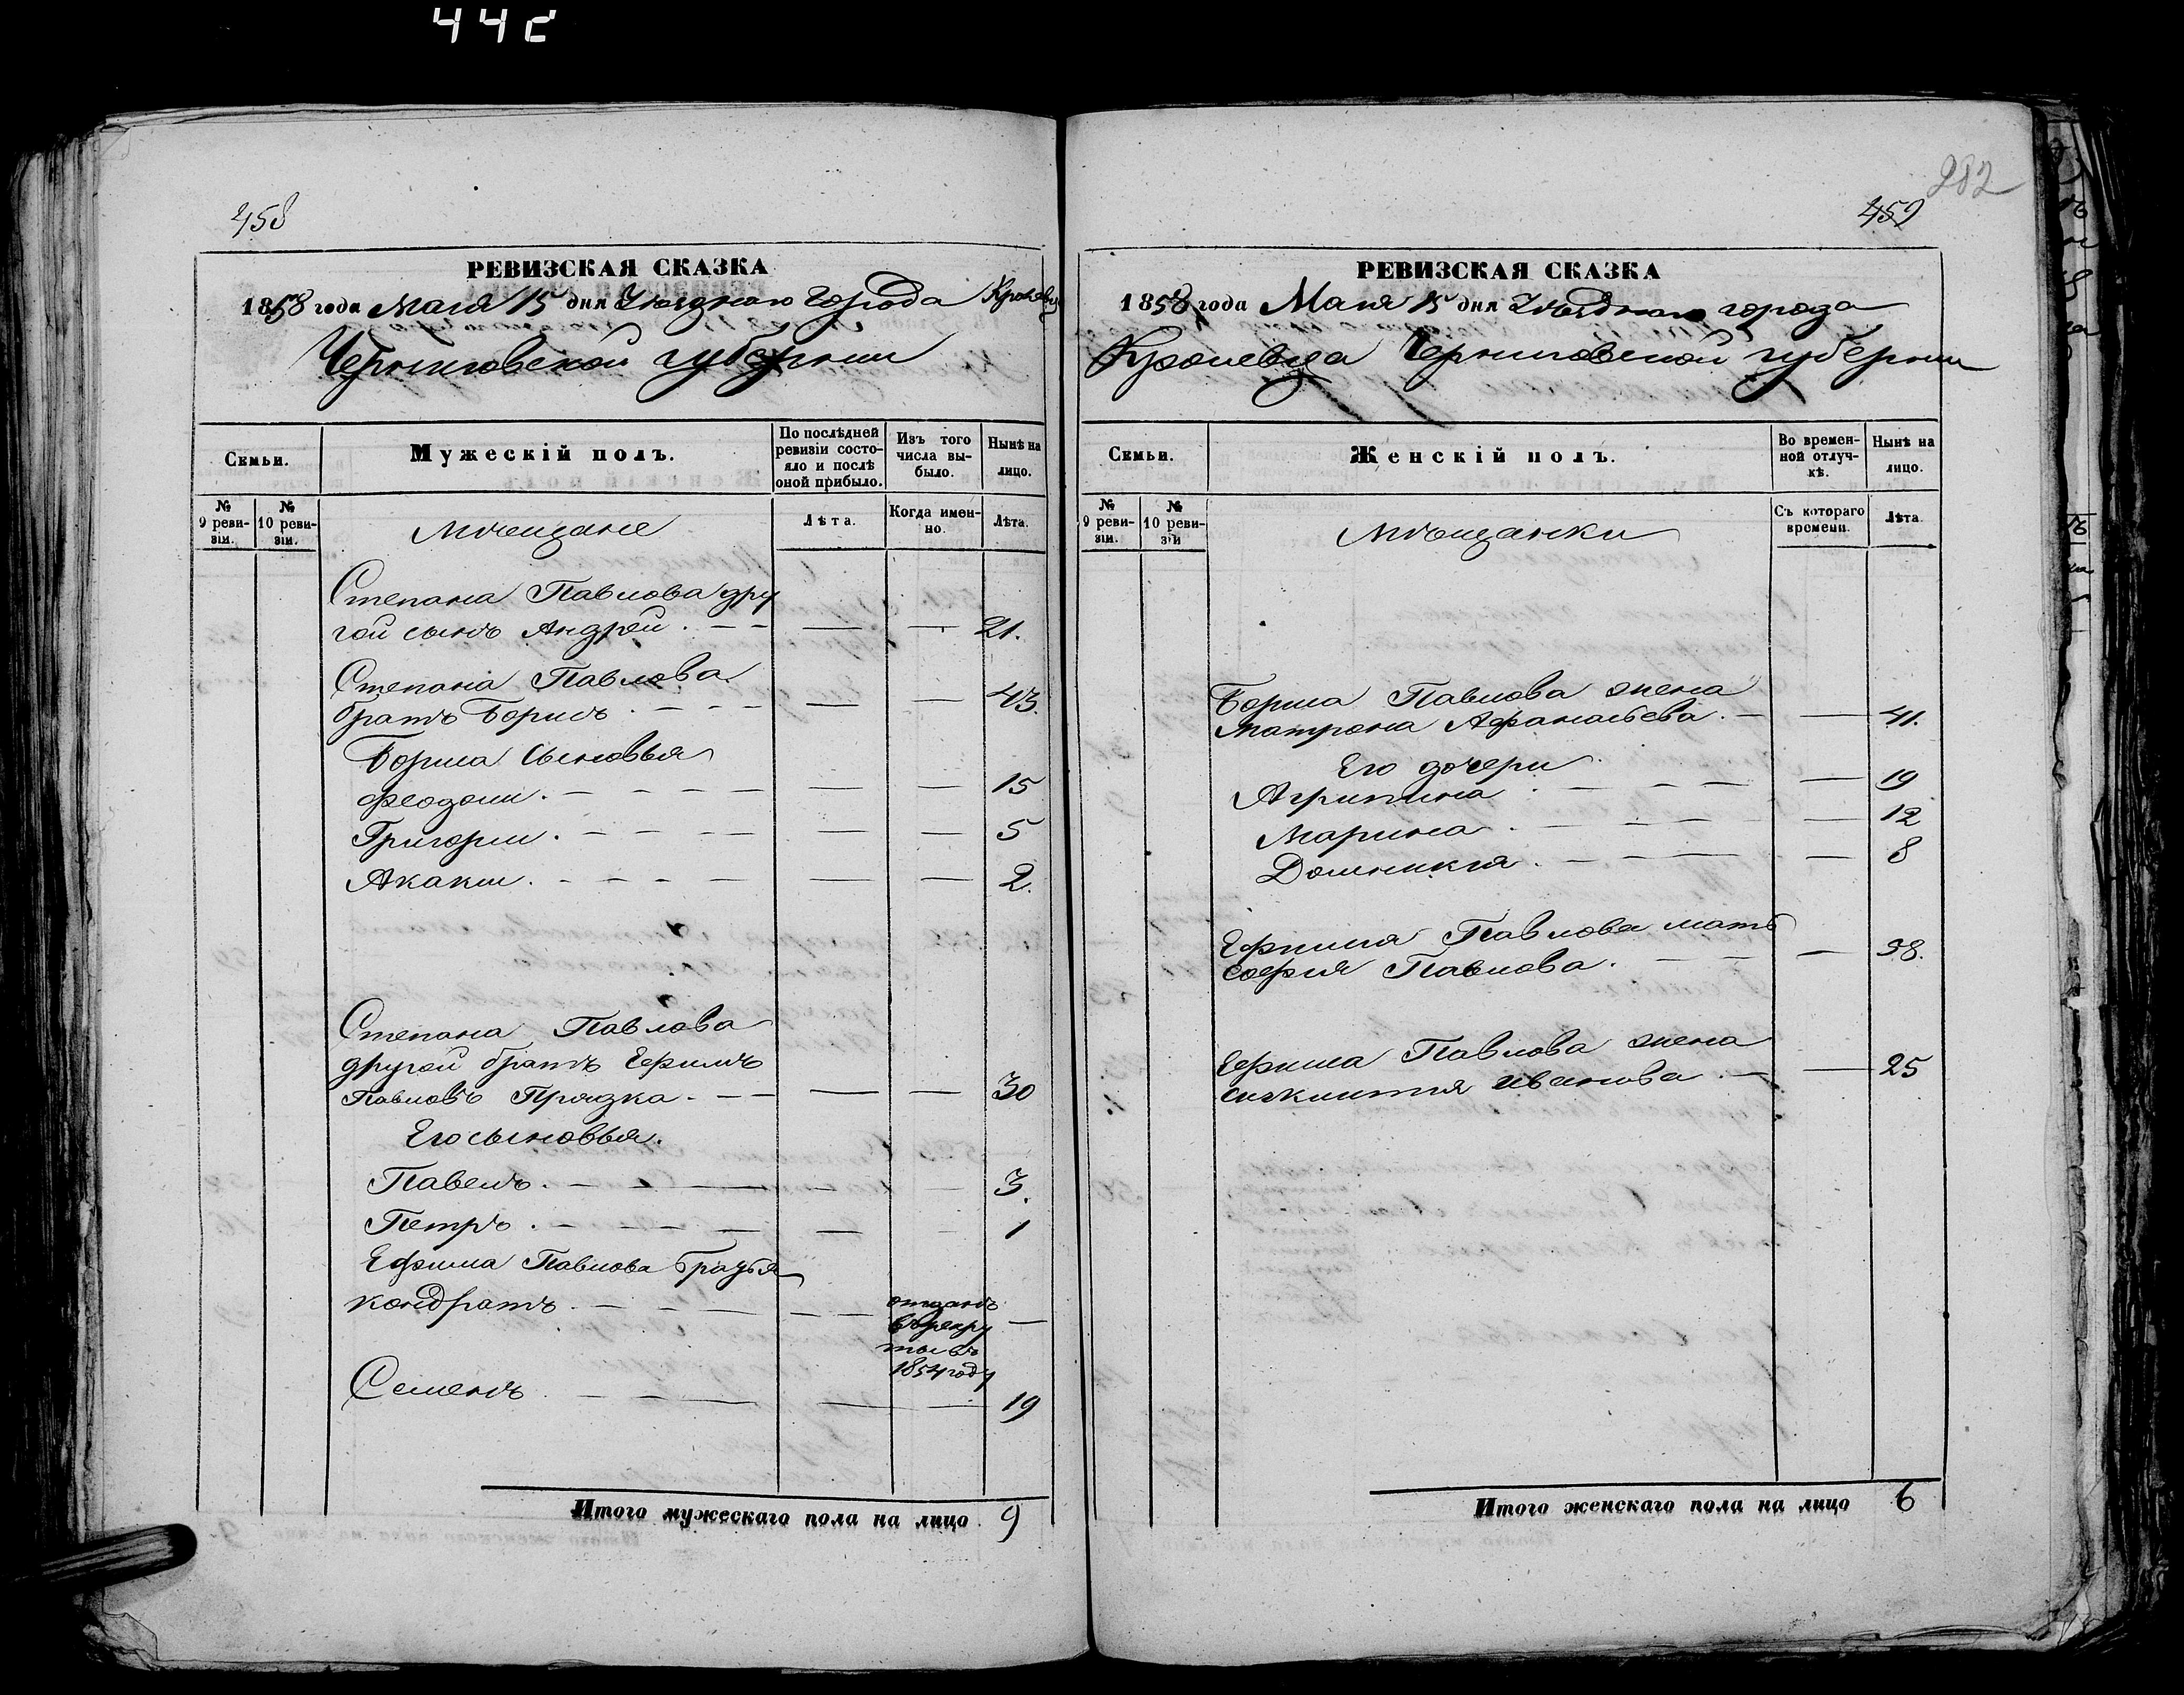 442
458
РЕВИЗСКАЯ СКАЗКА
1858 года Маия 15 дня Уѣзднаго Города Кролевца
Черниговской губернии
Семьи.
Мужескій полъ.
По послѣдней ревизіи состояло и послѣ оной прибыло.
Изъ того числа выбыло.
Нынѣ на лицо.
№ 9 ревизіи.
№ 10 ревизіи.
Мѣщане
Лѣта.
Когда именно.
Лѣта.
Степана Павлова дру
гой сынъ Андрей. 21.
Степана Павлова
братъ Борисъ. 43.
Бориса Сыновья
Феодосий. 15
Григорий. 5
Акакий. 2.
Степана Павлова
другой братъ Ефимъ
Павловъ Прядка. 30
Его сыновья.
Павелъ. 3.
Петръ. 1
Ефима Павлова братья
Кондратъ. отданъ
въ рекру
ты въ
1854 году
Семенъ 19
Итого мужескаго пола на лицо 9
282
459
РЕВИЗСКАЯ СКАЗКА
1858 года Маия 15 дня Уѣзднаго города
Кролевца Черниговской губернии
Семьи.
Женскій полъ.
Во временной отлучкѣ.
Нынѣ на лицо.
№ 9 ревизіи.
№ 10 ревизіи
Мѣщанки
Съ котораго времени.
Лѣта.
Бориса Павлова жена
Матрона Афанасьева. 41.
Его дочери
Агрипина. 19
Марина. 12
Домникия. 8
Ефима Павлова мать
София Павлова. 58.
Ефима Павлова жена
Иванова. 25
Итого женскаго пола на лицо 6